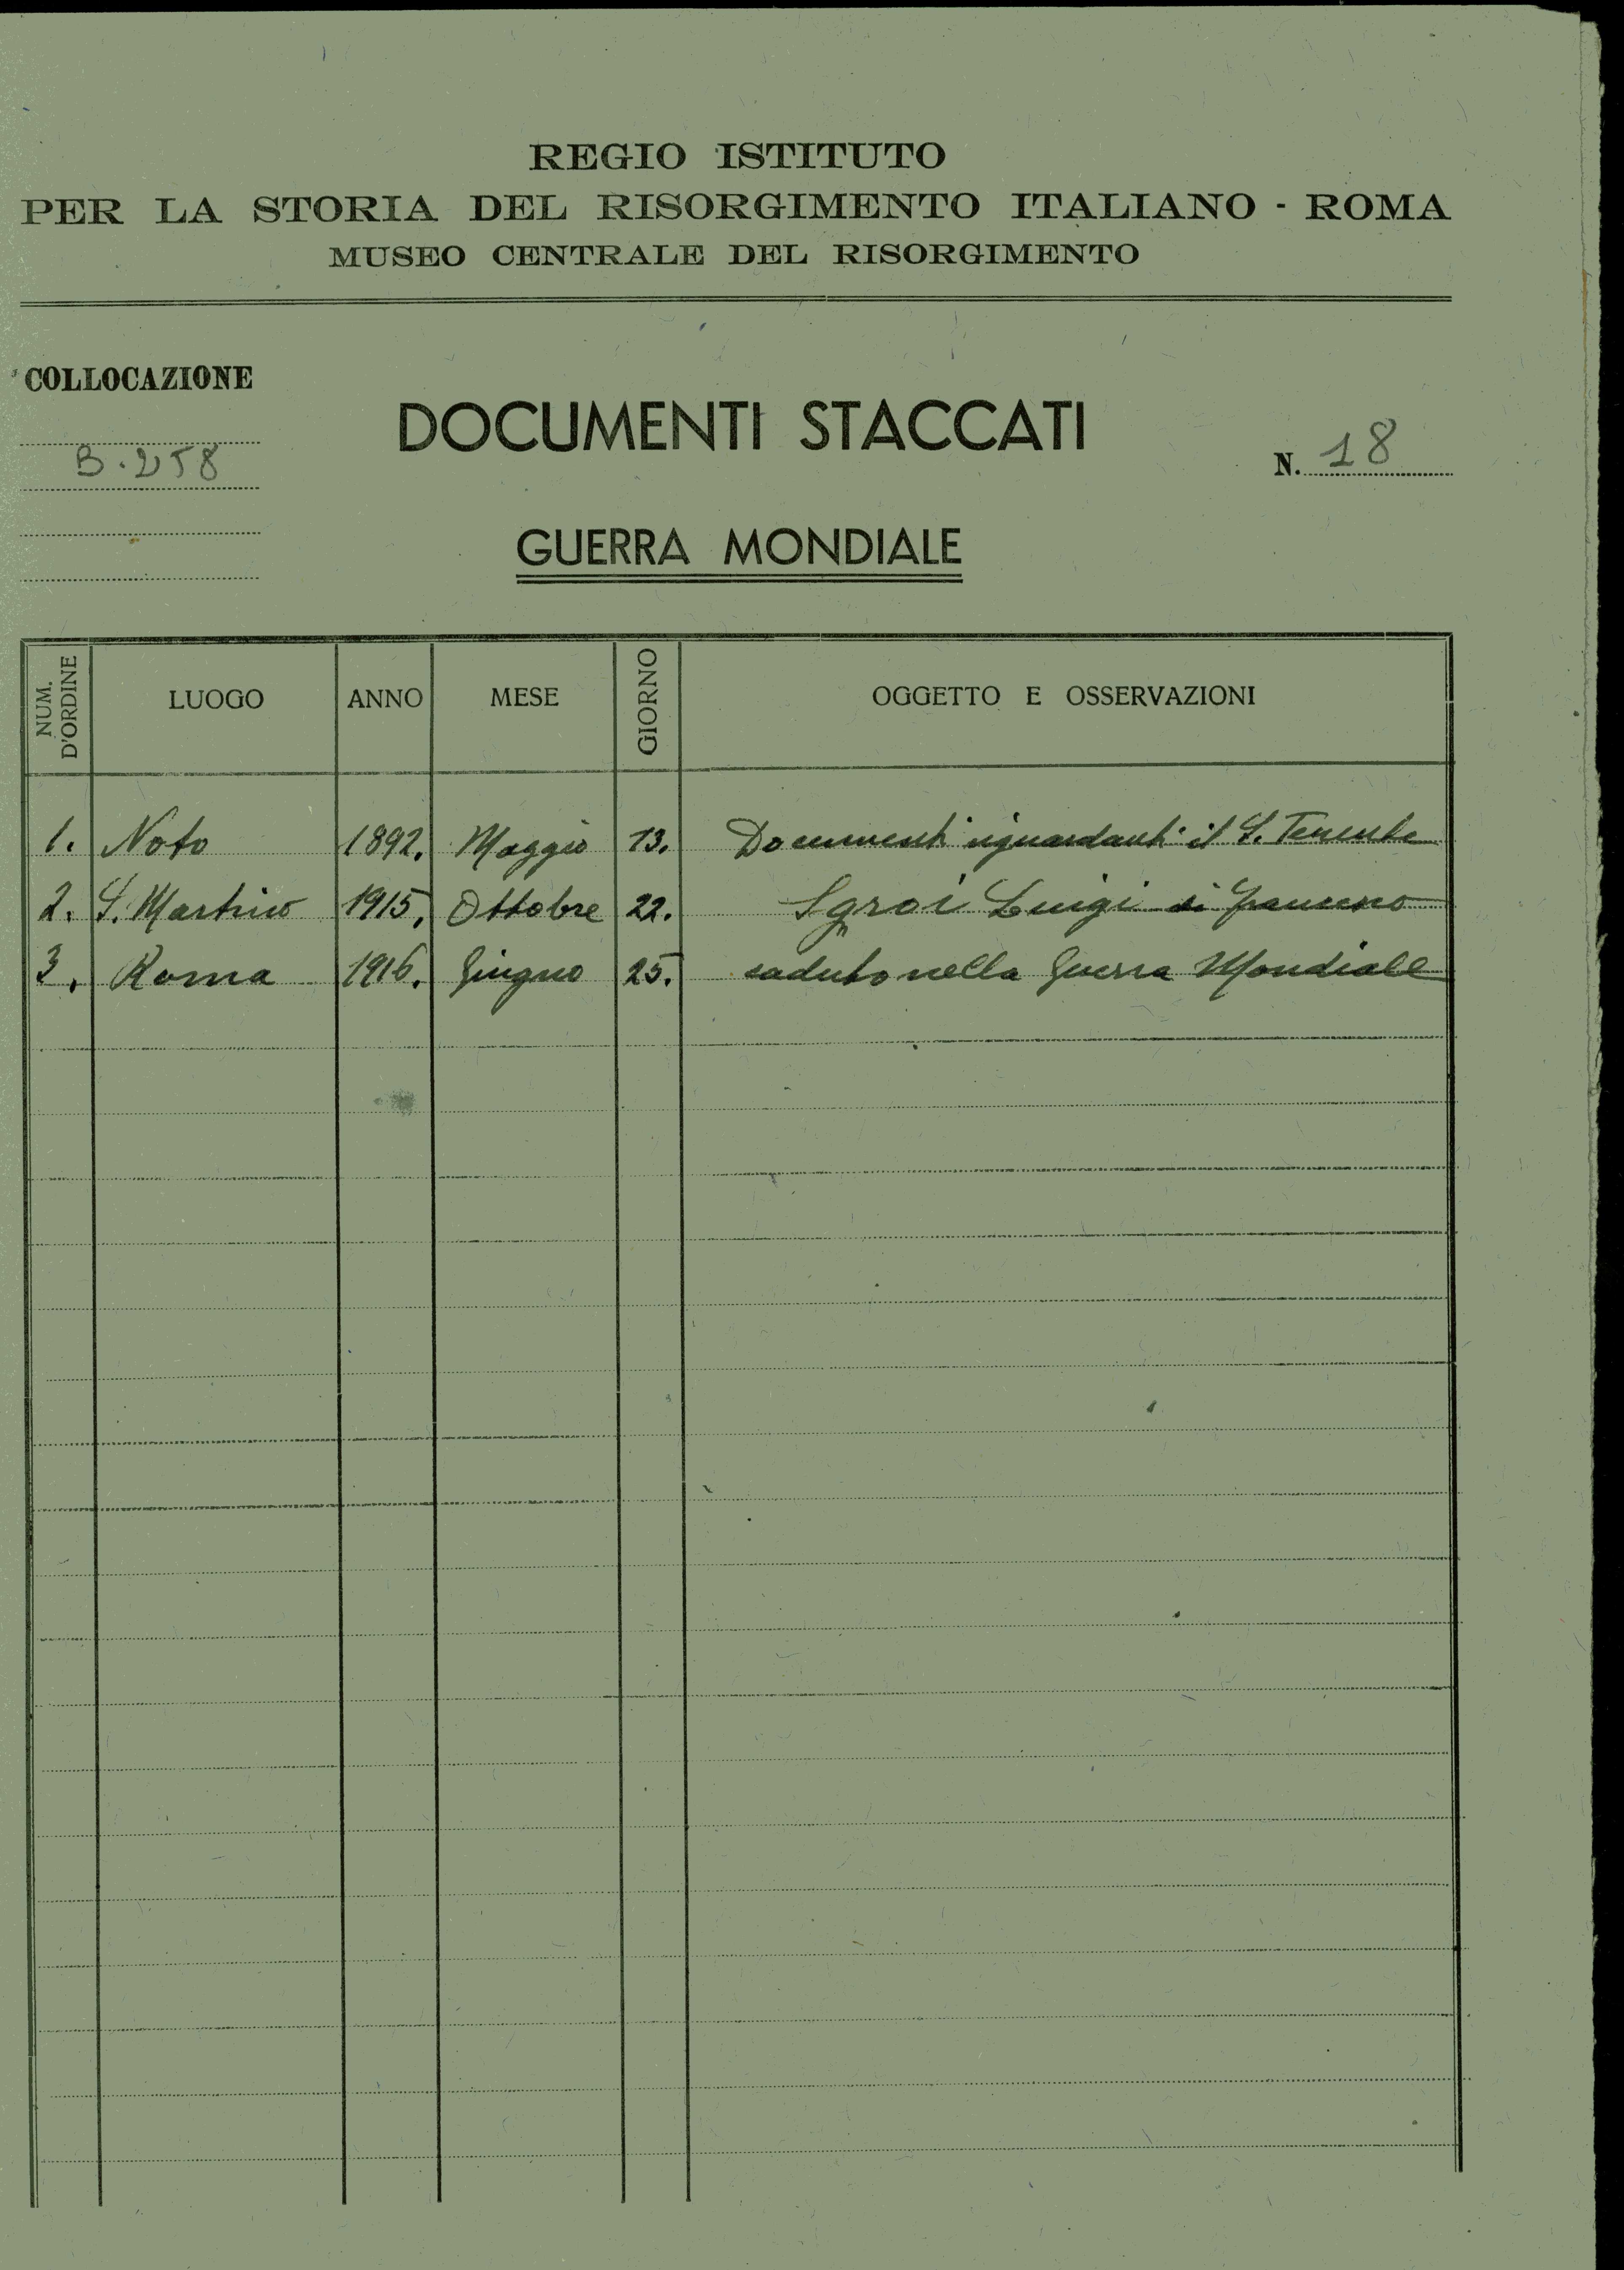 REGIO ISTITUTO
PER LA STORIA DEL RISORGIMENTO ITALIANO - ROMA
MUSEO CENTRALE DEL RISORGIMENTO
COLLOCAZIONE
B. 258
DOCUMENTI STACCATI
N. 18
GUERRA MONDIALE
NUM. D'ORDINE LUOGO ANNO MESE GIORNO OGGETTO E OSSERVAZIONI
1. Noto 1892. Maggio 13. Documenti riguardanti il S. Tenente
2. S. Martino 1915. Ottobre 22. Sgroi Luigi di Francesco
3. Roma 1916. Giugno 25. caduto nella Guerra Mondiale